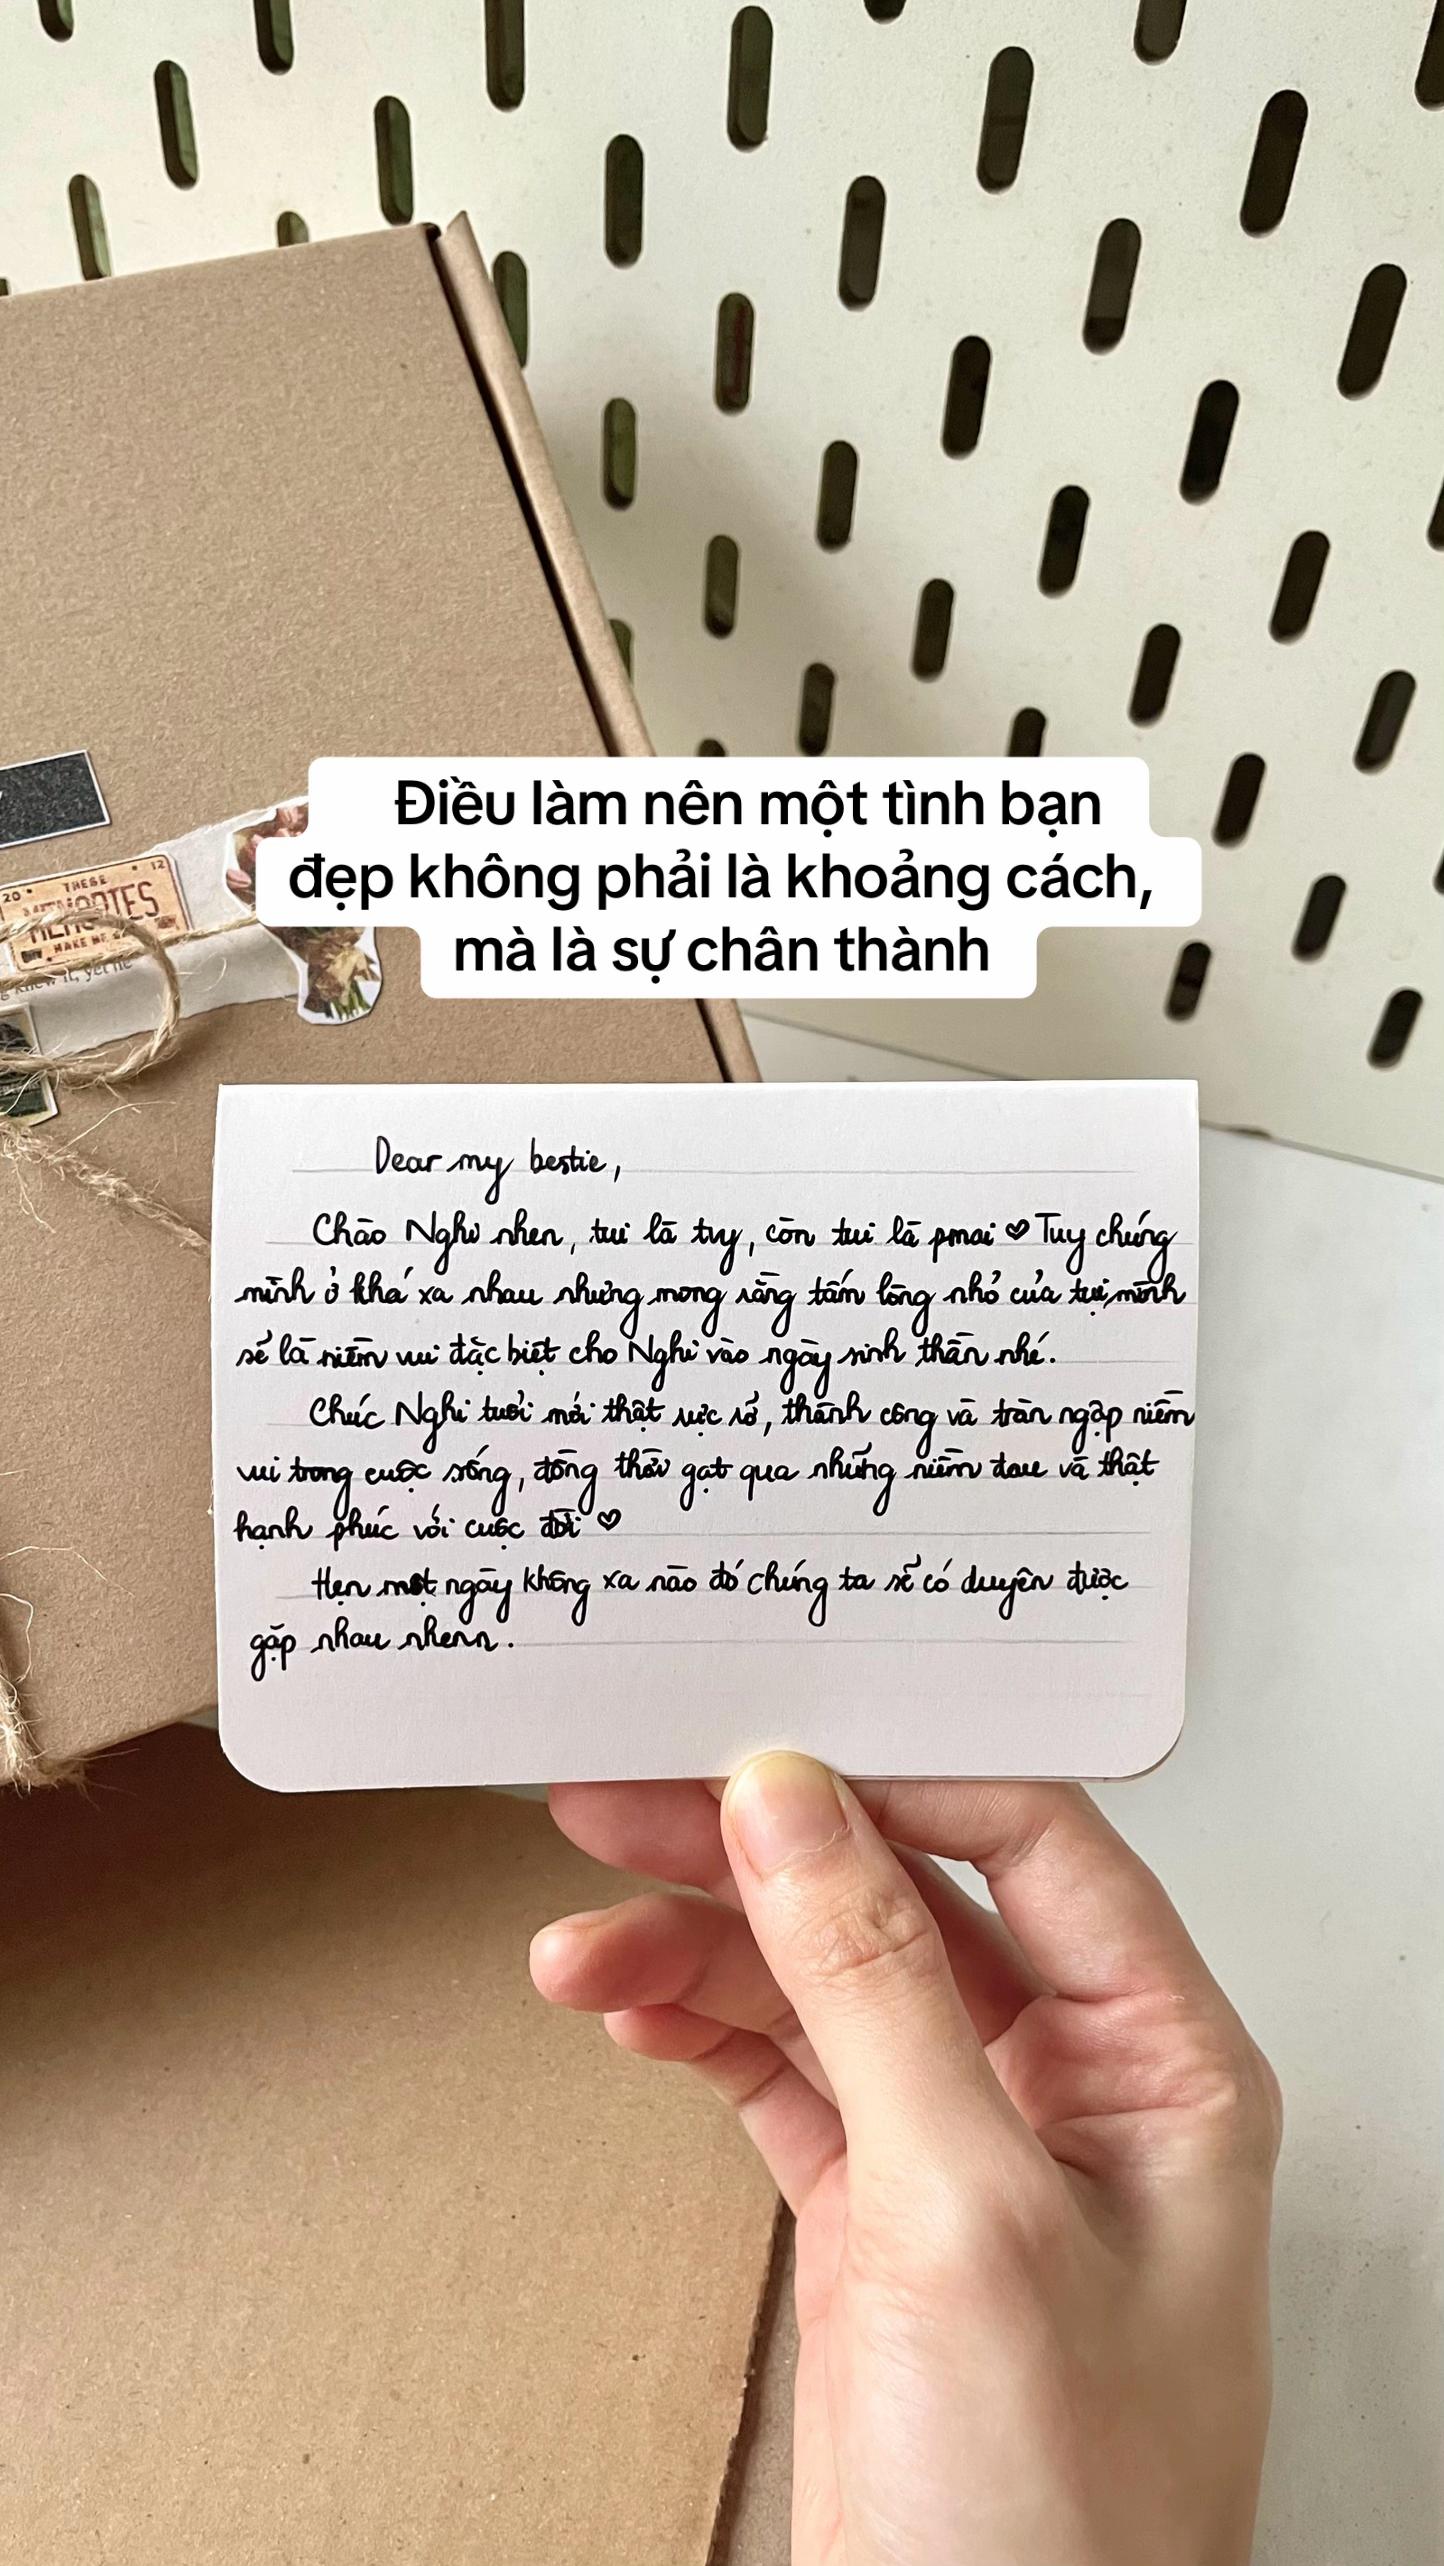 Điều làm nên một tình bạn
đẹp không phải là khoảng cách,
mà là sự chân thành
20 12
THESE
MAKE ME
knew it, yet he
Dear my bestie,
Chào Nghi nhen, tui là tvy, còn tui là pmai ♥ Tuy chúng
mình ở khá xa nhau nhưng mong rằng tấm lòng nhỏ của tụi mình
sẽ là niềm vui đặc biệt cho Nghi vào ngày sinh thần nhé.
Chúc Nghi tuổi mới thật rực rỡ, thành công và tràn ngập niềm
vui trong cuộc sống, đồng thời gạt qua những niềm đau và thật
hạnh phúc với cuộc đời ♥
Hẹn một ngày không xa nào đó chúng ta sẽ có duyên được
gặp nhau nhenn.